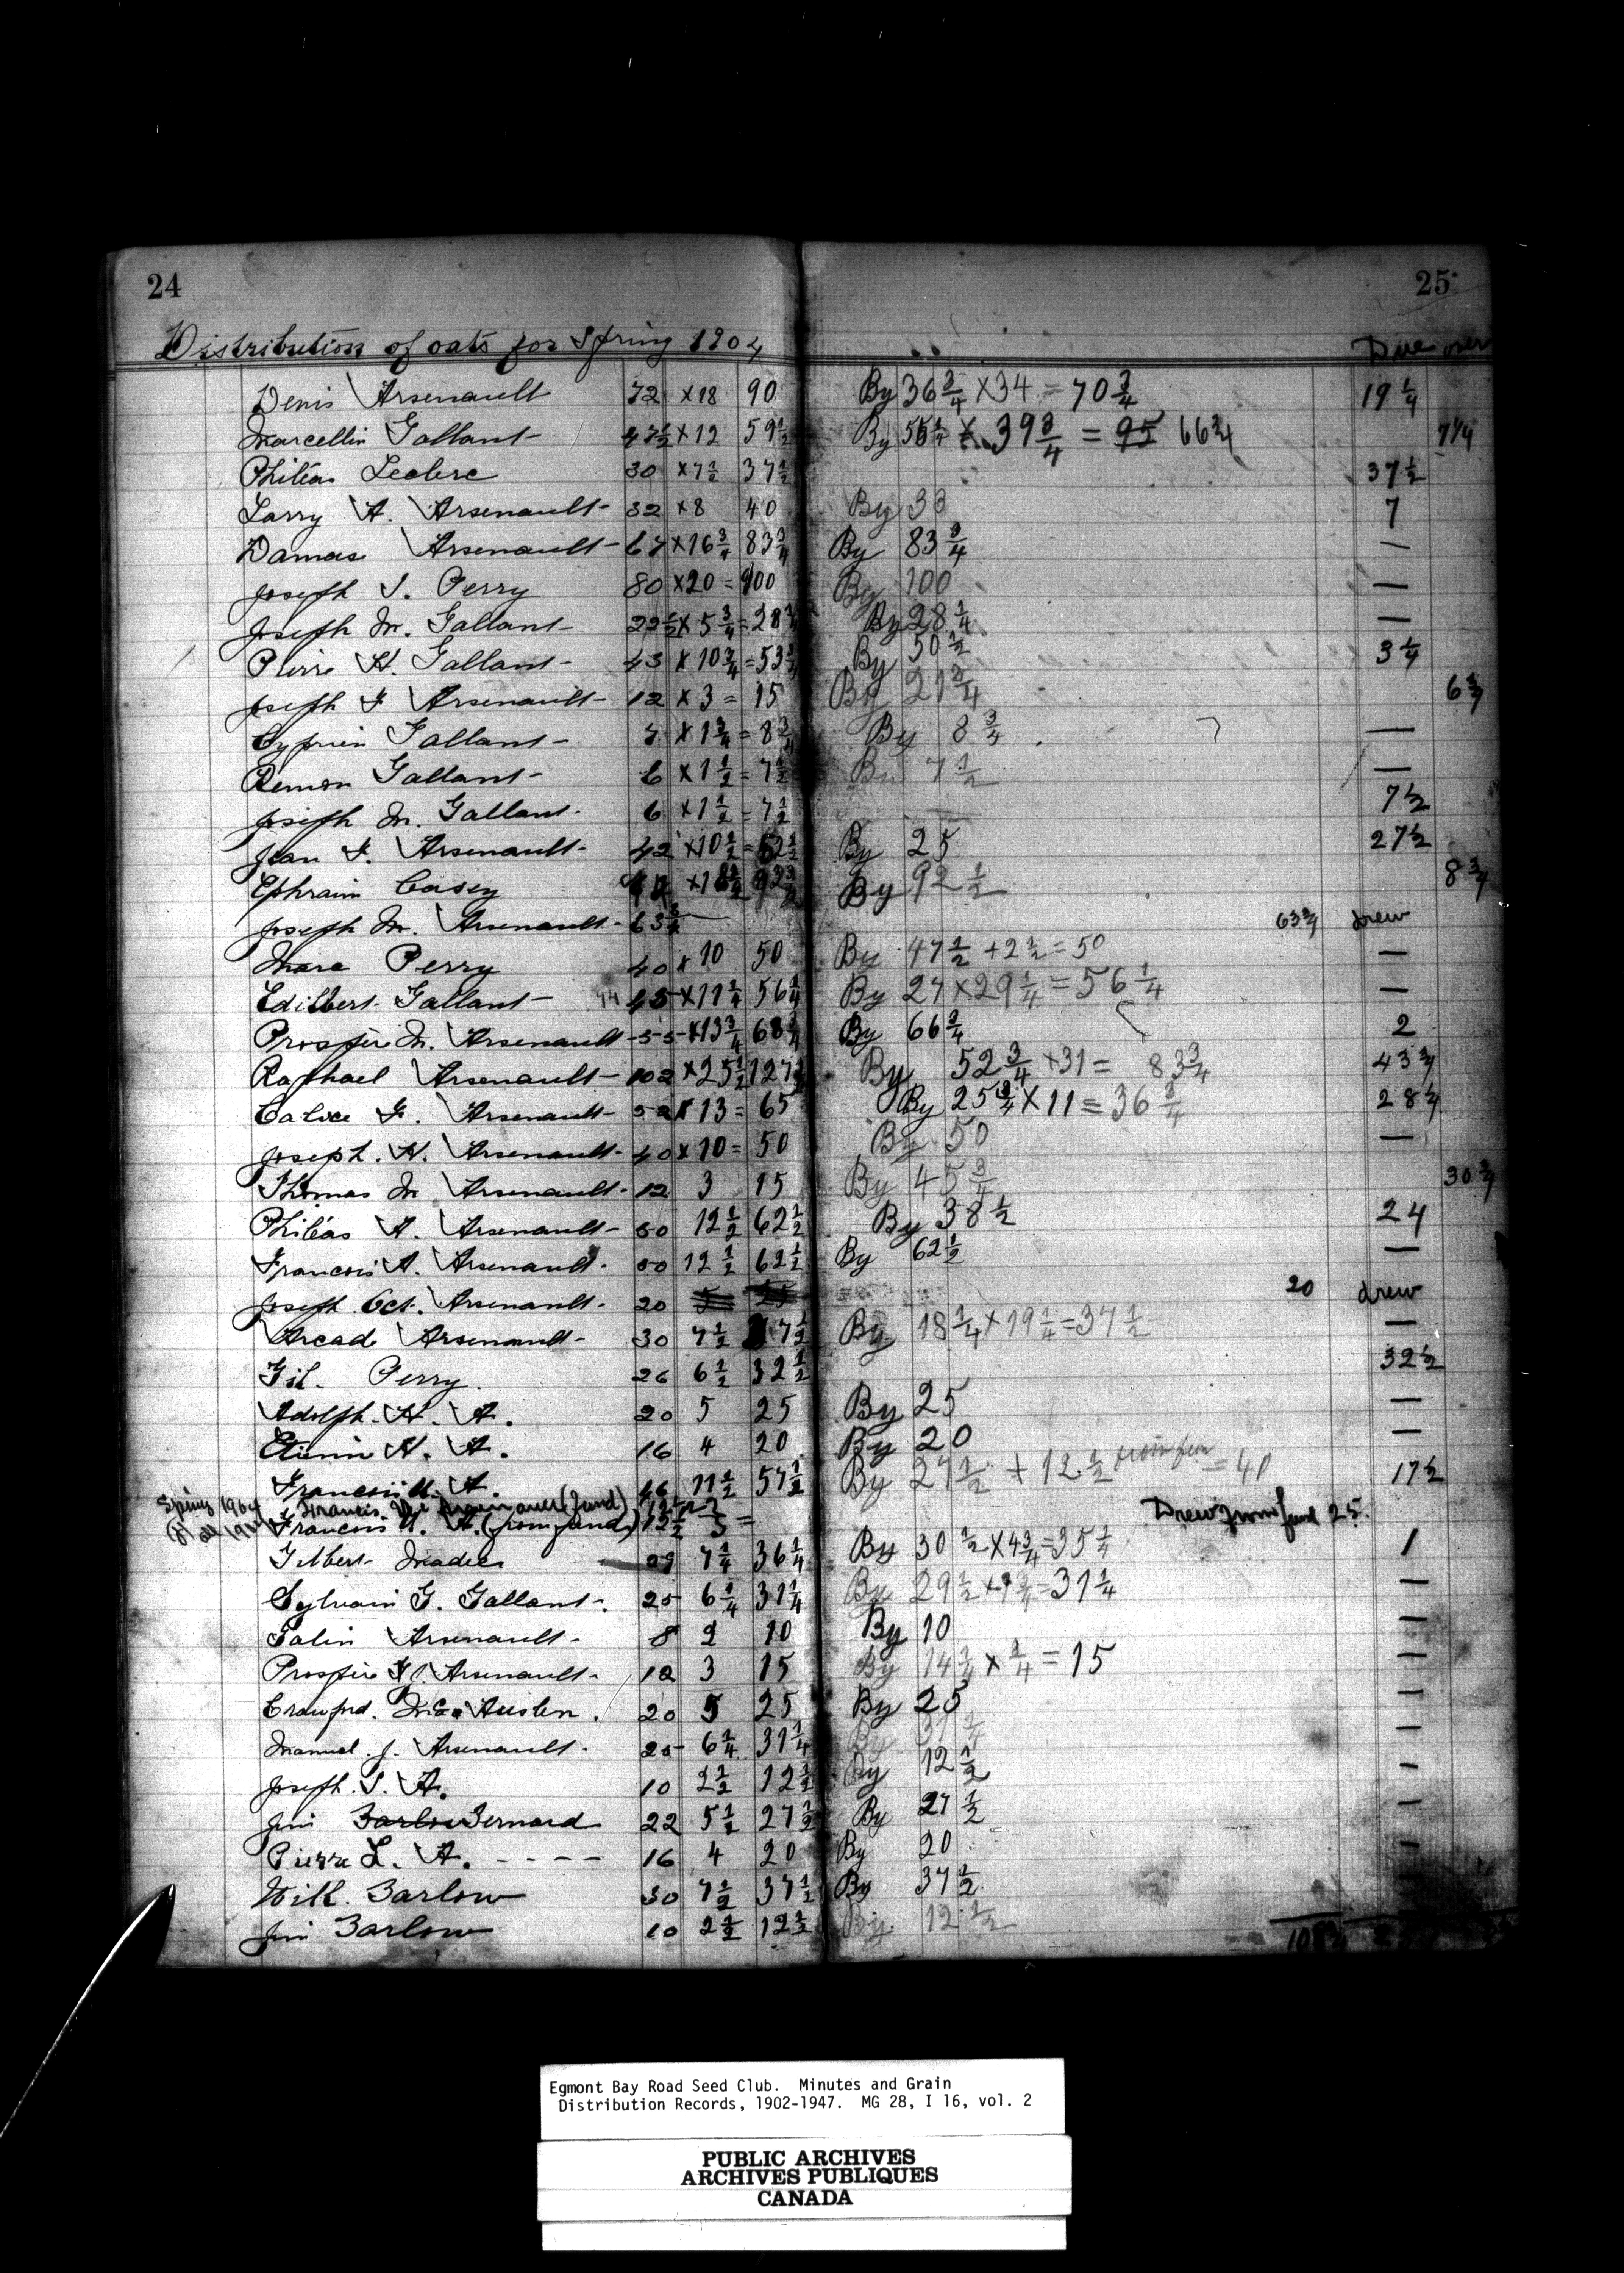 24 25
Distribution of oats for Spring 1904 Due over
Denis Arsenault 72 × 18 90 By 36 3/4 × 34 = 70 3/4 19 1/4
Marcellin Gallant 47 1/2 × 12 59 1/2 By × 39 3/4 = 95 66 3/4 7 1/4
Philéas Leclerc 30 × 7 1/2 37 1/2 37 1/2
Larry A. Arsenault 32 × 8 40 By 33 7
Damase Arsenault 67 × 16 3/4 83 3/4 By 83 3/4 —
Joseph S. Perry 80 × 20 = 100 By 100 —
Joseph M. Gallant 22 1/2 × 5 3/4 = 28 1/4 By 28 1/4 —
Pierre H. Gallant 43 × 10 3/4 = 53 3/4 By 50 1/2 3 1/4
Joseph F Arsenault 12 × 3 = 15 By 21 3/4 6 3/4
Cyprien Gallant 7 × 1 3/4 = 8 3/4 By 8 3/4 —
Remon Gallant 6 × 1 1/2 = 7 1/2 By 7 1/2 —
Joseph M. Gallant 6 × 1 1/2 = 7 1/2 7 1/2
Jean F. Arsenault 42 × 10 1/2 = 52 1/2 By 25 27 1/2
Ephraim Casey By 92 1/2 8 3/4
Joseph M. Arsenault 63 3/4 63 3/4 drew
Marc Perry 40 × 10 50 By 47 1/2 + 2 1/2 = 50 —
Edilbert Gallant 44 45 × 11 1/4 56 1/4 By 27 × 29 1/4 = 56 1/4 —
Prospère M. Arsenault 55 × 13 3/4 68 3/4 By 66 3/4 2
Raphael Arsenault 102 × 25 1/2 127 1/2 By 52 3/4 × 31 = 83 3/4 43 3/4
Calice F. Arsenault 52 × 13 = 65 By 25 3/4 × 11 = 36 3/4 28 1/4
Joseph. H. Arsenault 40 × 10 = 50 By 50 —
Thomas M Arsenault 12 3 15 By 45 3/4 30 3/4
Philéas A. Arsenault 50 12 1/2 62 1/2 By 38 1/2 24
Francois A. Arsenault 50 12 1/2 62 1/2 By 62 1/2 —
Joseph Oct. Arsenault 20 5 25 20 drew
Arcade Arsenault 30 7 1/2 37 1/2 By 18 1/4 × 19 1/4 = 37 1/2 —
Gil. Perry 26 6 1/2 32 1/2 32 1/2
Adolph. H. A. 20 5 25 By 25 —
Etienn H. A. 16 4 20 By 20 —
Francois U. A. 46 11 1/2 57 1/2 By 27 1/2 + 12 1/2 from fun = 40 17 1/2
Spring 1904 Francis (fund) 12 1/2 Drew from fund 25.
Francois U. A. (from fund) 12 1/2 5 =
Gilbert Madix 29 7 1/4 36 1/4 By 30 1/2 × 4 3/4 = 35 1/4 1
Sylvain G. Gallant 25 6 1/4 31 1/4 By 29 1/2 × 1 3/4 = 31 1/4 —
Palin Arsenault 8 2 10 By 10 —
Prospère F. Arsenault 12 3 15 By 14 1/4 × 3/4 = 15 —
Crawford. McAuslen. 20 5 25 By 25 —
Manuel. J. Arsenault 25 6 1/4 31 1/4 By 31 1/4 —
Joseph. S. A. 10 2 1/2 12 1/2 By 12 1/2 —
Jim Barlow Bernard 22 5 1/2 27 1/2 By 27 1/2 —
Pierre L. A. - - - - 16 4 20 By 20 —
Will. Barlow 30 7 1/2 37 1/2 By 37 1/2
Jim Barlow 10 2 1/2 12 1/2 By 12 1/2
Egmont Bay Road Seed Club. Minutes and Grain
Distribution Records, 1902-1947. MG 28, I 16, vol. 2
PUBLIC ARCHIVES
ARCHIVES PUBLIQUES
CANADA